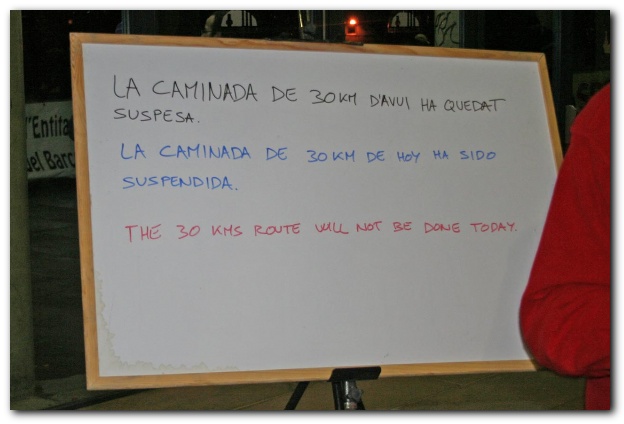 LA CAMINADA DE 30KM D'AVUI HA QUEDAT
SUSPESA.
LA CAMINADA DE 30KM DE HOY HA SIDO
SUSPENDIDA.
THE 30 KMS ROUTE WILL NOT BE DONE TODAY.
"Entita
del Barc